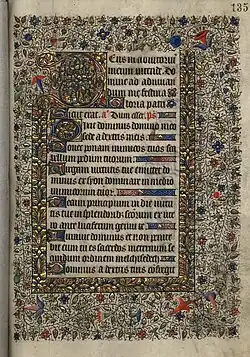 135
Eus in adiutoriu
meum intende. Do
mine ad adiuuan
dum me festina
loria patri
Sicut erat. a Dum esset. ps
Dixit dominus domino meo
sede a dextris meis
Donec ponam inimicos tuos sca
bellum pedum tuorum
Virgam uirtutis tue emittet do
minus ex syon dominare in medio
inimicorum tuor
Tecum principium in die uirtu
tis tue in splendorib; scorum ex ute
ro ante luciferum genui te
Iurauit dominus et non penite
bit eum tu es sacerdos in eternum se
cundum ordinem melchisedech
Dominus a dextris tuis confregit